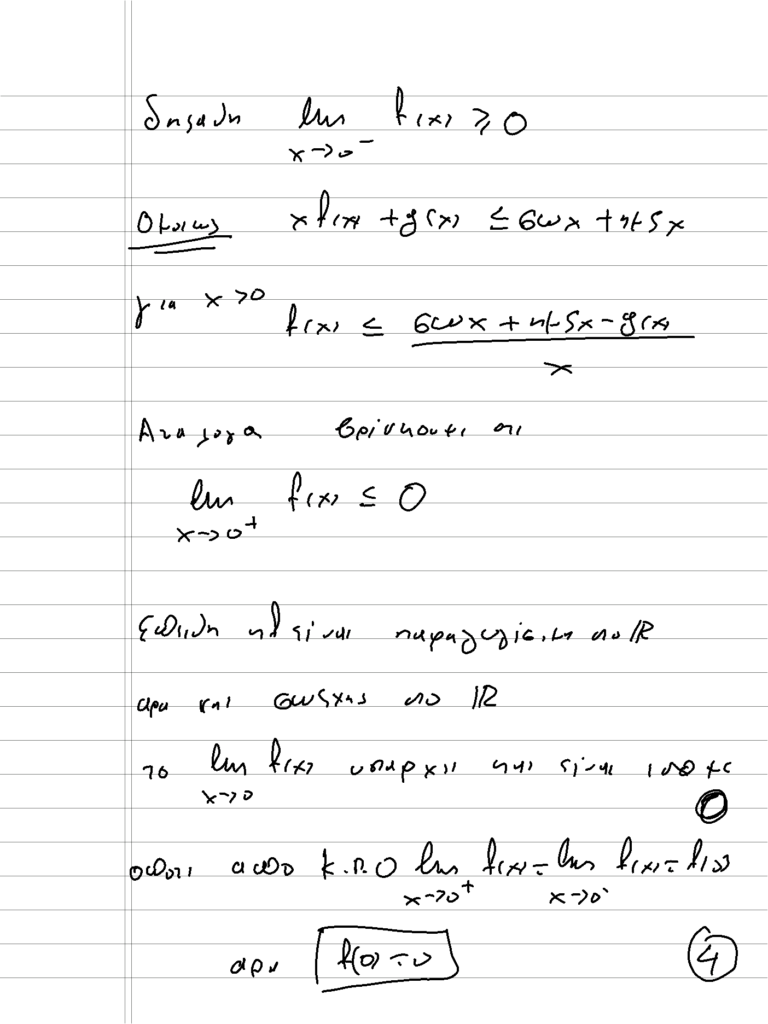 δηλαδη lim f(x) ≥ 0
x→0⁻
Ομοιως x f(x) + g(x) ≤ συνx + ημ5x
για x > 0 f(x) ≤ συνx + ημ5x − g(x)
x
Αναλογα βρίσκουμε οτι
lim f(x) ≤ 0
x→0⁺
Επειδη η f είναι παραγωγίσιμη στο ℝ
αρα και συνεχης στο ℝ
το lim f(x) υπαρχει και είναι ισο με
x→0
0
οποτε απο Κ.Π.Ο lim f(x) = lim f(x) = f(0)
x→0⁺ x→0⁻
αρα f(0) = 0
4